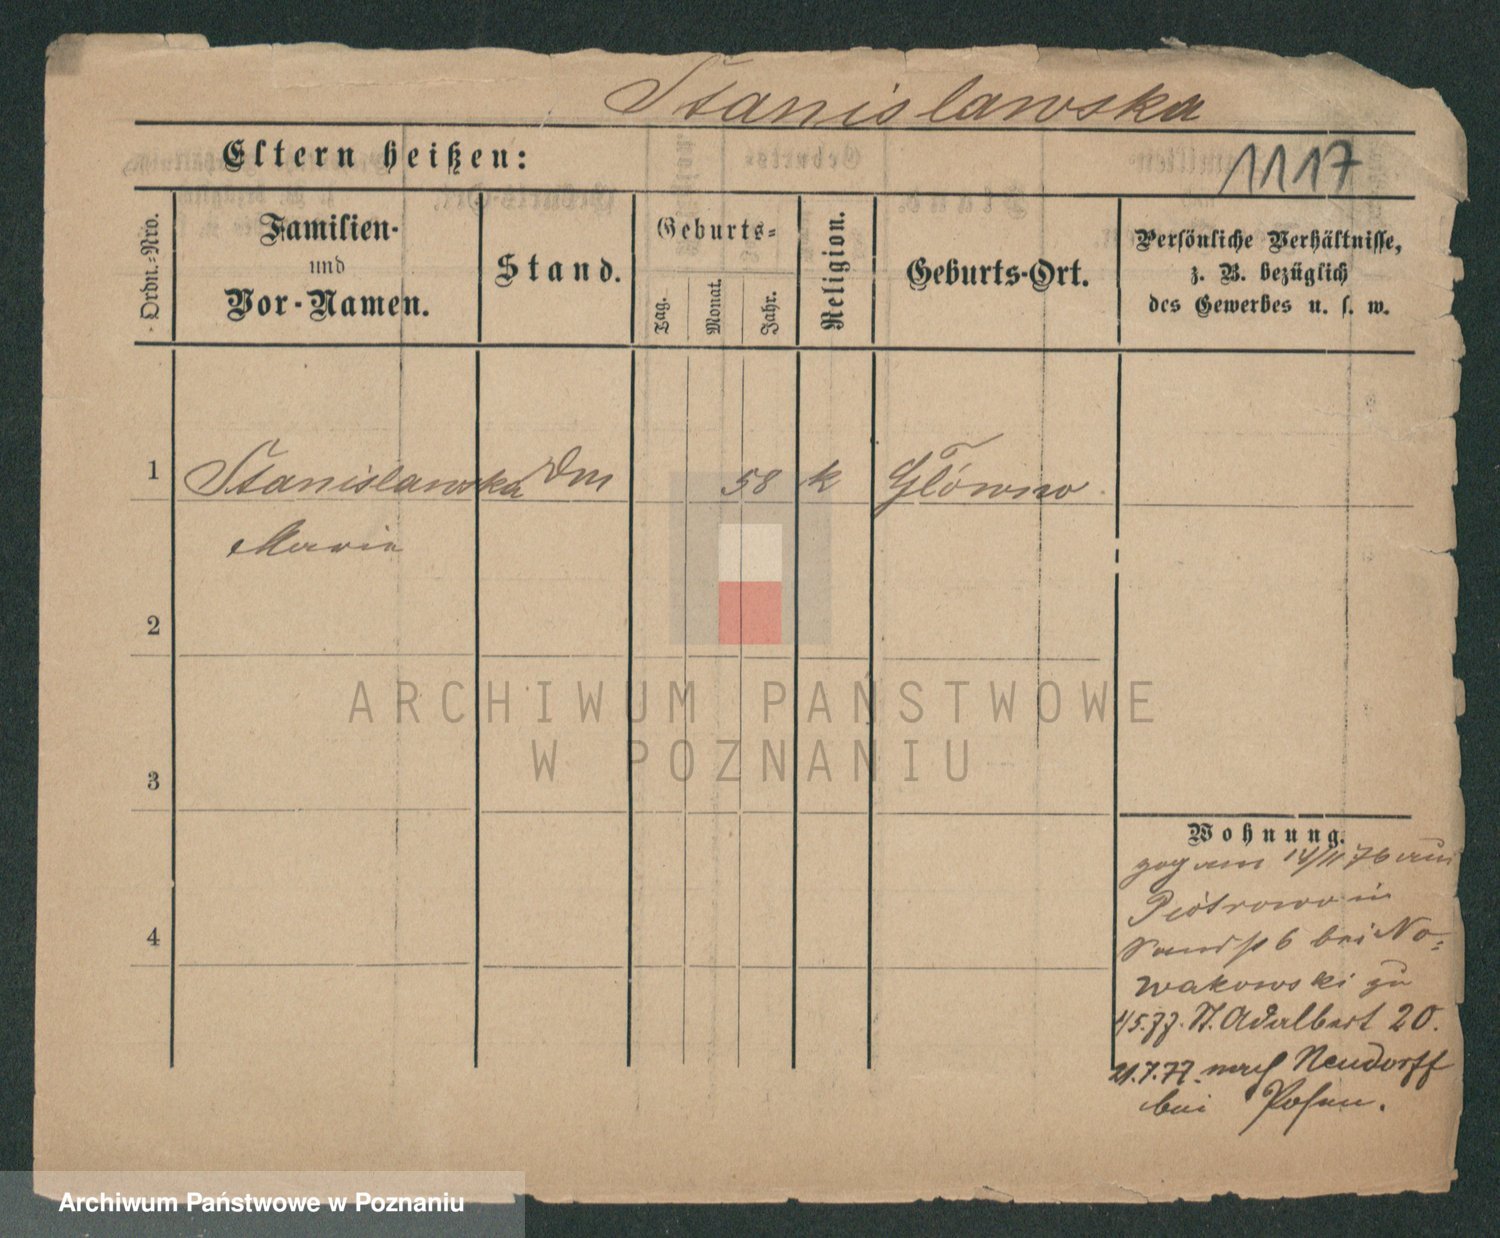 Stanislawska
Eltern heißen:
1117
Ordn.-Nro.
Familien-
und
Vor-Namen.
Stand.
Geburts-
Tag.
Monat.
Jahr.
Religion.
Geburts-Ort.
Persönliche Verhältnisse,
z. B. bezüglich
des Gewerbes u. s. w.
1
Stanislawska Dm 58 k Glówno
Maria
2
3
4
ARCHIWUM PAŃSTWOWE
W POZNANIU
Wohnung.
zog am 14/11 76 aus
Piotrowo in
6 bei No-
wakowski zu
1/5.77. St. Adalbert 20.
21.7.77. nach Neudorff
bei Posen.
Archiwum Państwowe w Poznaniu